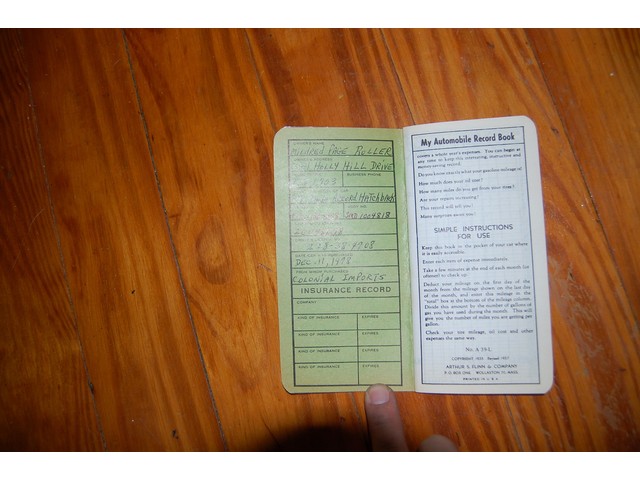 OWNER'S NAME
MILDRED PAGE ROLLER
HOLLY HILL DRIVE
BUSINESS PHONE
ACCORD HATCHBACK
DEC. 11, 1978
FROM WHOM PURCHASED
COLONIAL IMPORTS
INSURANCE RECORD
COMPANY
KIND OF INSURANCE EXPIRES
KIND OF INSURANCE EXPIRES
KIND OF INSURANCE EXPIRES
KIND OF INSURANCE EXPIRES
My Automobile Record Book
covers a whole year's expenses. You can begin at
any time to keep this interesting, instructive and
money-saving record.
Do you know exactly what your gasoline mileage is?
How much does your oil cost?
How many miles do you get from your tires?
Are your repairs increasing?
This record will tell you!
Many surprises await you!
SIMPLE INSTRUCTIONS
FOR USE
Keep this book in the pocket of your car where
it is easily accessible.
Enter each item of expense immediately.
Take a few minutes at the end of each month (or
oftener) to check up.
Deduct your mileage on the first day of
the month from the mileage shown on the last day
of the month, and enter this mileage in the
"total" box at the bottom of the mileage column.
Divide this amount by the number of gallons of
gas you have used during the month. This will
give you the number of miles you are getting per
gallon.
Check your tire mileage, oil cost and other
expenses the same way.
ARTHUR S. FLINN & COMPANY
P. O. BOX ONE, WOLLASTON 70, MASS.
PRINTED IN U.S.A.